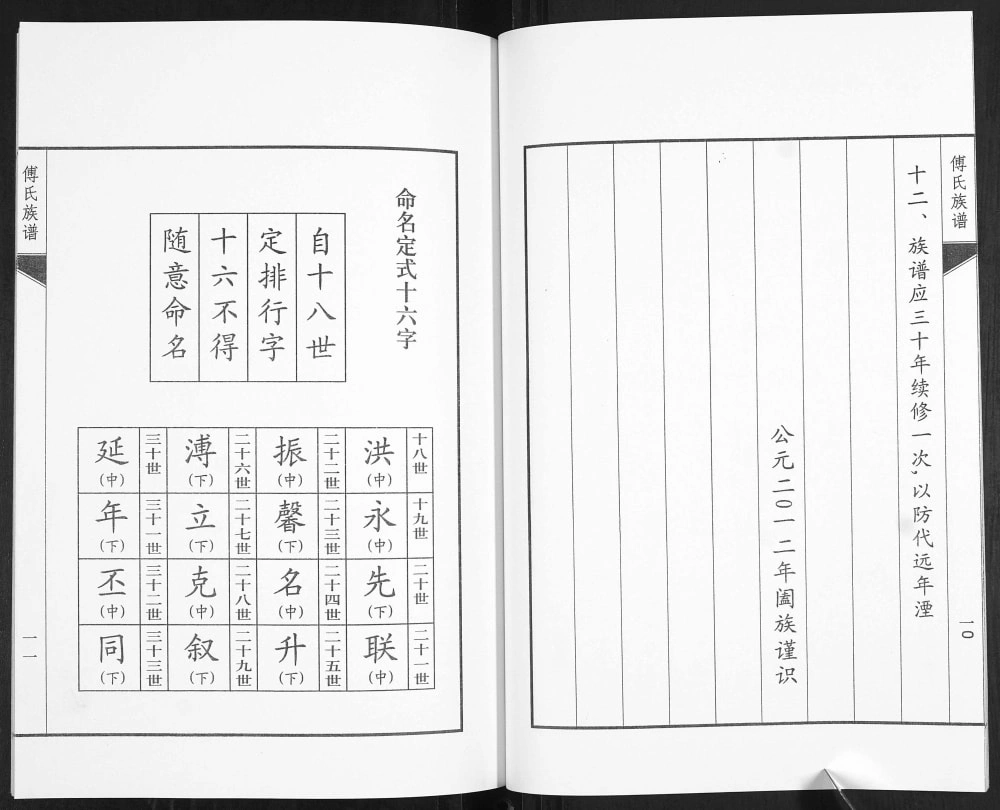 傅氏族谱
十二、族谱应三十年续修一次,以防代远年湮
公元二〇一二年阖族谨识
一〇
命名定式十六字
自十八世
定排行字
十六不得
随意命名
十八世 洪(中)
十九世 永(中)
二十世 先(下)
二十一世 联(中)
二十二世 振(中)
二十三世 馨(下)
二十四世 名(中)
二十五世 升(下)
二十六世 溥(下)
二十七世 立(下)
二十八世 克(中)
二十九世 叙(下)
三十世 延(中)
三十一世 年(下)
三十二世 丕(中)
三十三世 同(下)
傅氏族谱
一一